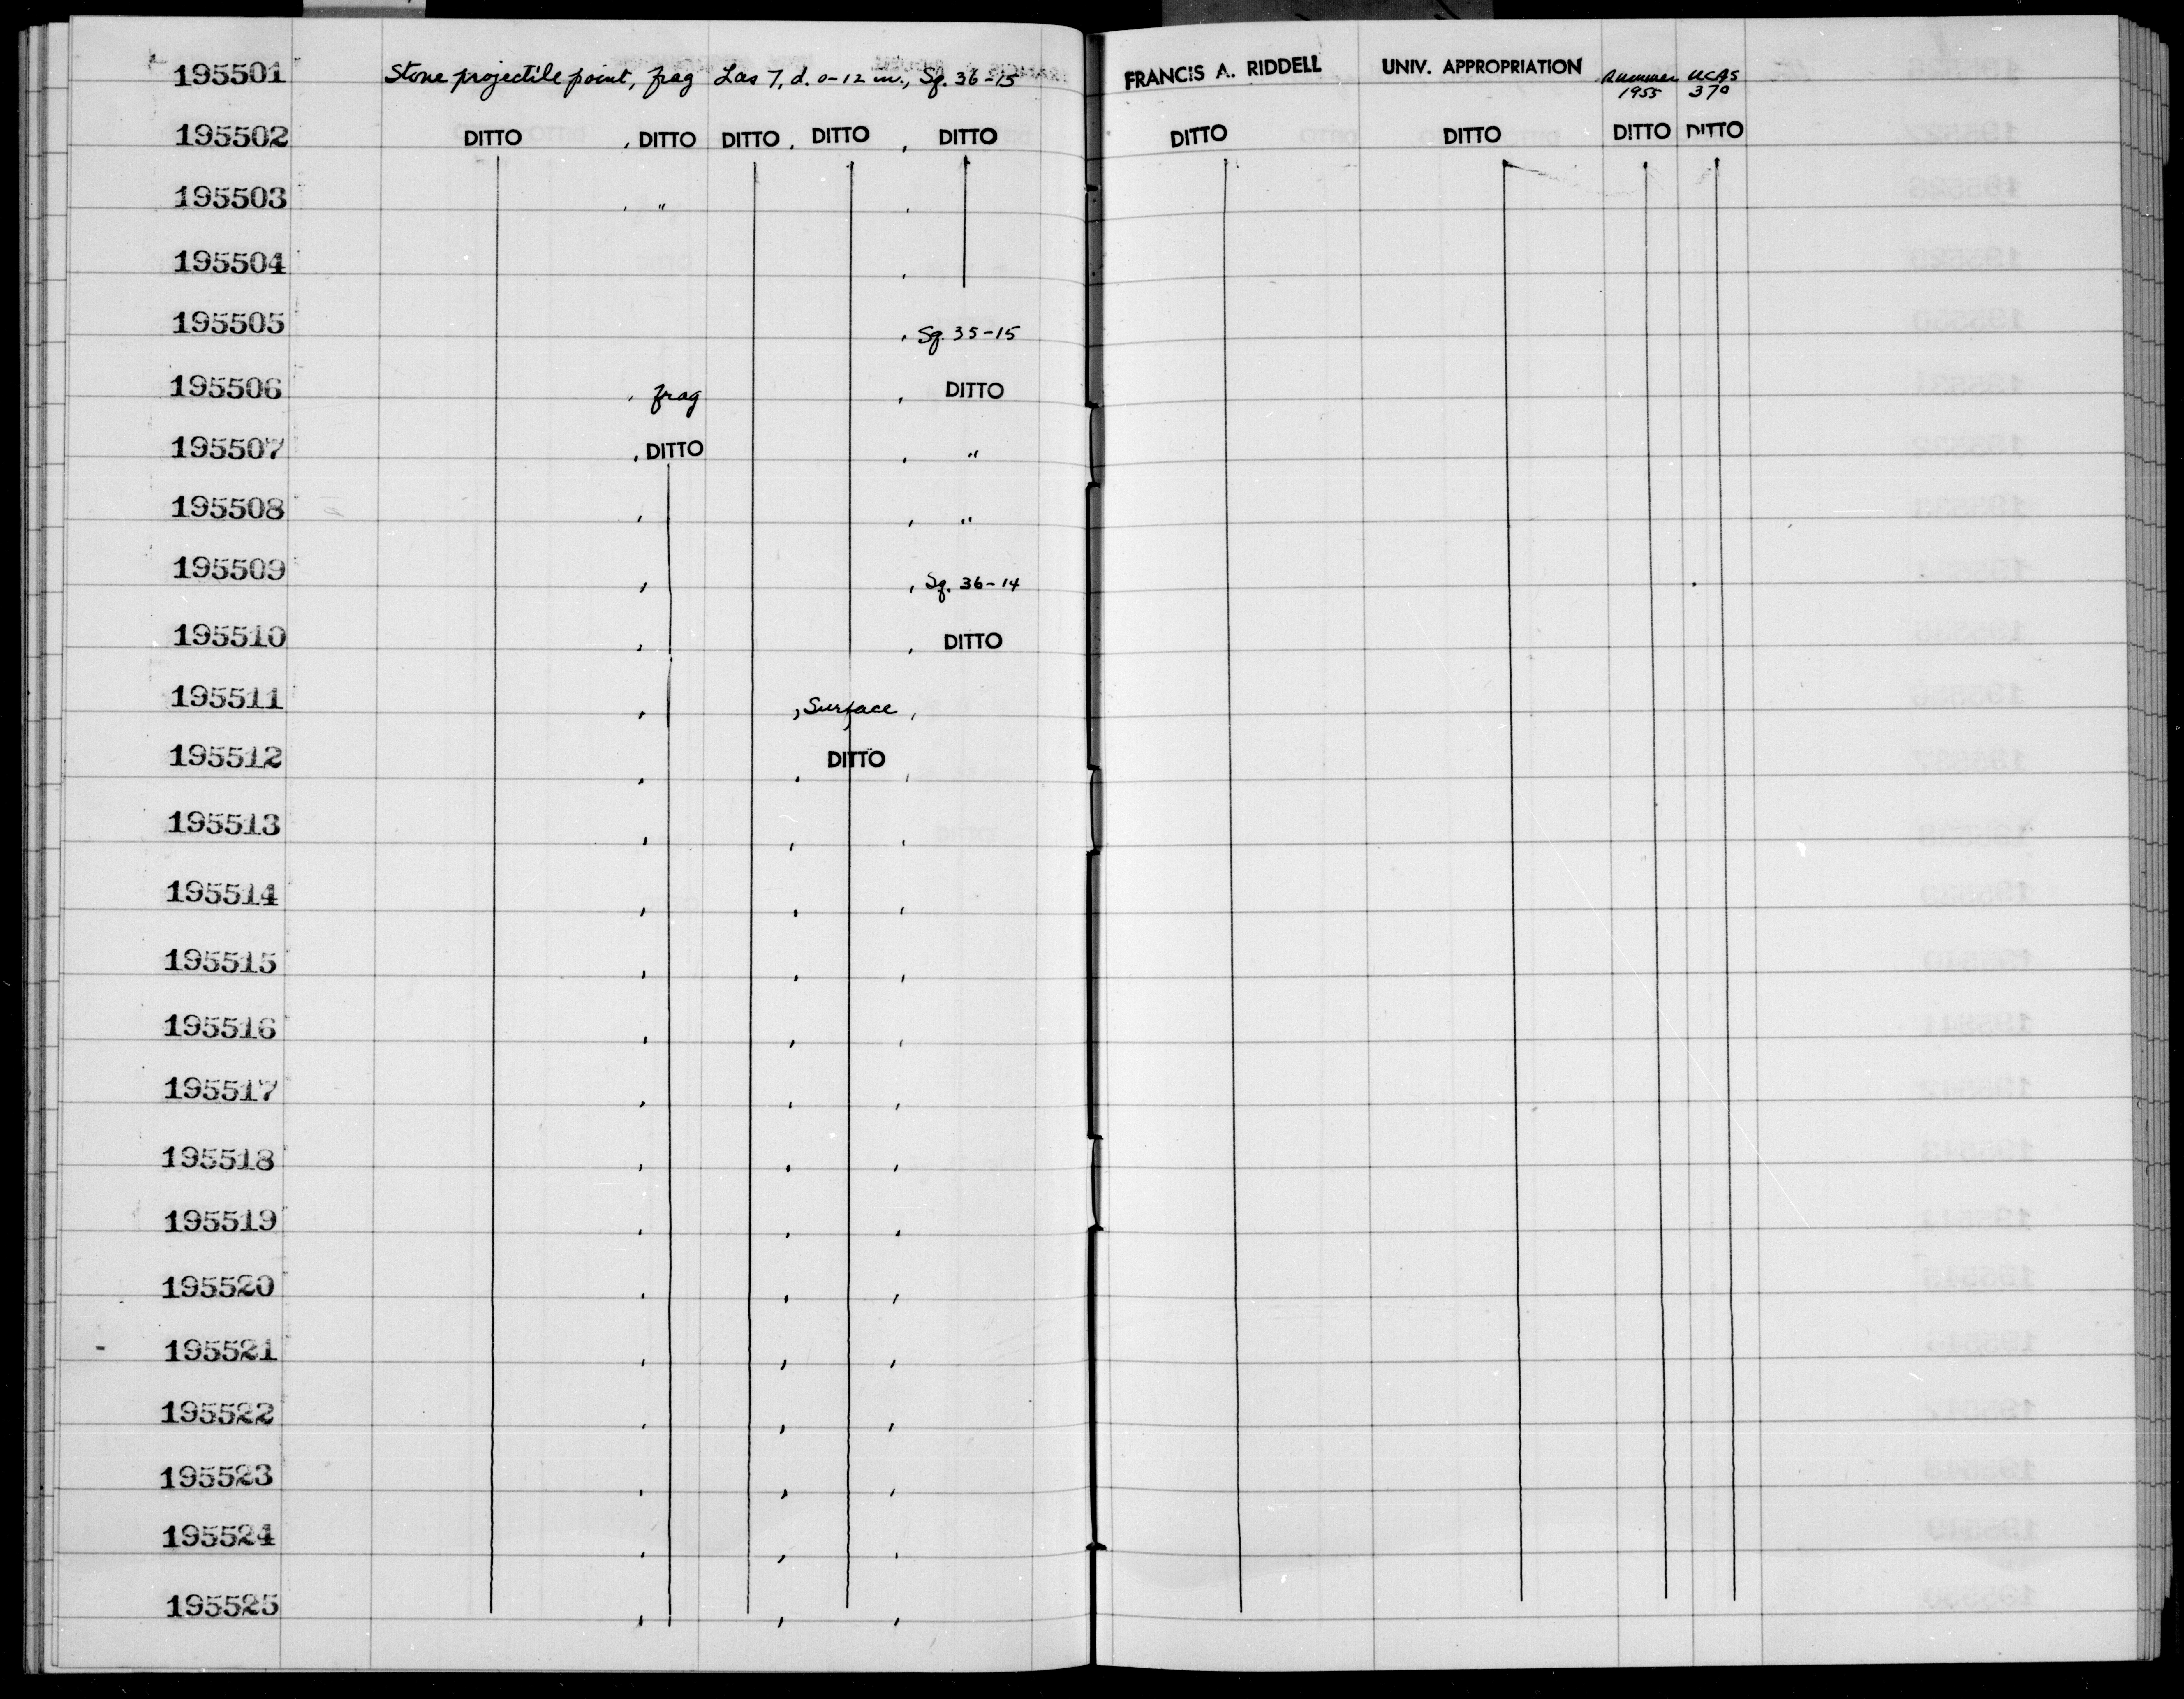 195501 Stone projectile point, frag Las 7, d. 0-12 in., Sq. 36-15 FRANCIS A. RIDDELL UNIV. APPROPRIATION Summer 1955 UCAS 370
195502 DITTO , DITTO DITTO , DITTO , DITTO DITTO DITTO DITTO DITTO
195503 , " ,
195504 ,
195505 , Sq. 35-15
195506 , frag , DITTO
195507 , DITTO , "
195508 , , "
195509 , , Sq. 36-14
195510 , , DITTO
195511 , , Surface ,
195512 , , DITTO ,
195513 , , ,
195514 , , ,
195515 , , ,
195516 , , ,
195517 , , ,
195518 , , ,
195519 , , ,
195520 , , ,
195521 , , ,
195522 , , ,
195523 , , ,
195524 , , ,
195525 , , ,